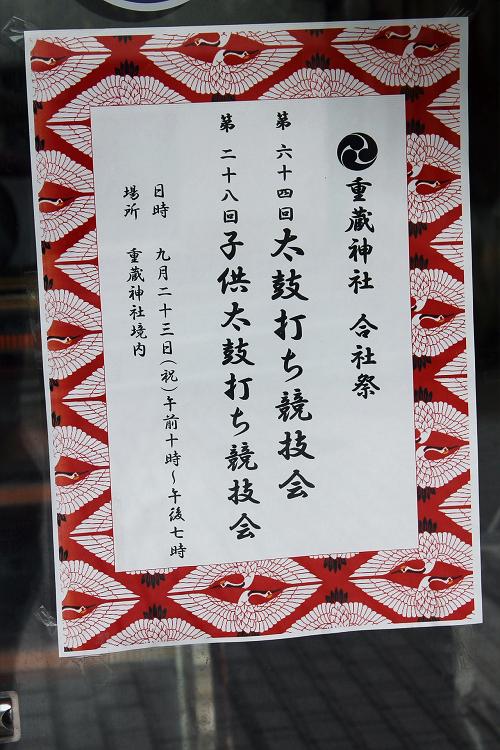 重蔵神社 合社祭
第六十四回太鼓打ち競技会
第二十八回子供太鼓打ち競技会
日時 九月二十三日(祝)午前十時～午後七時
場所 重蔵神社境内